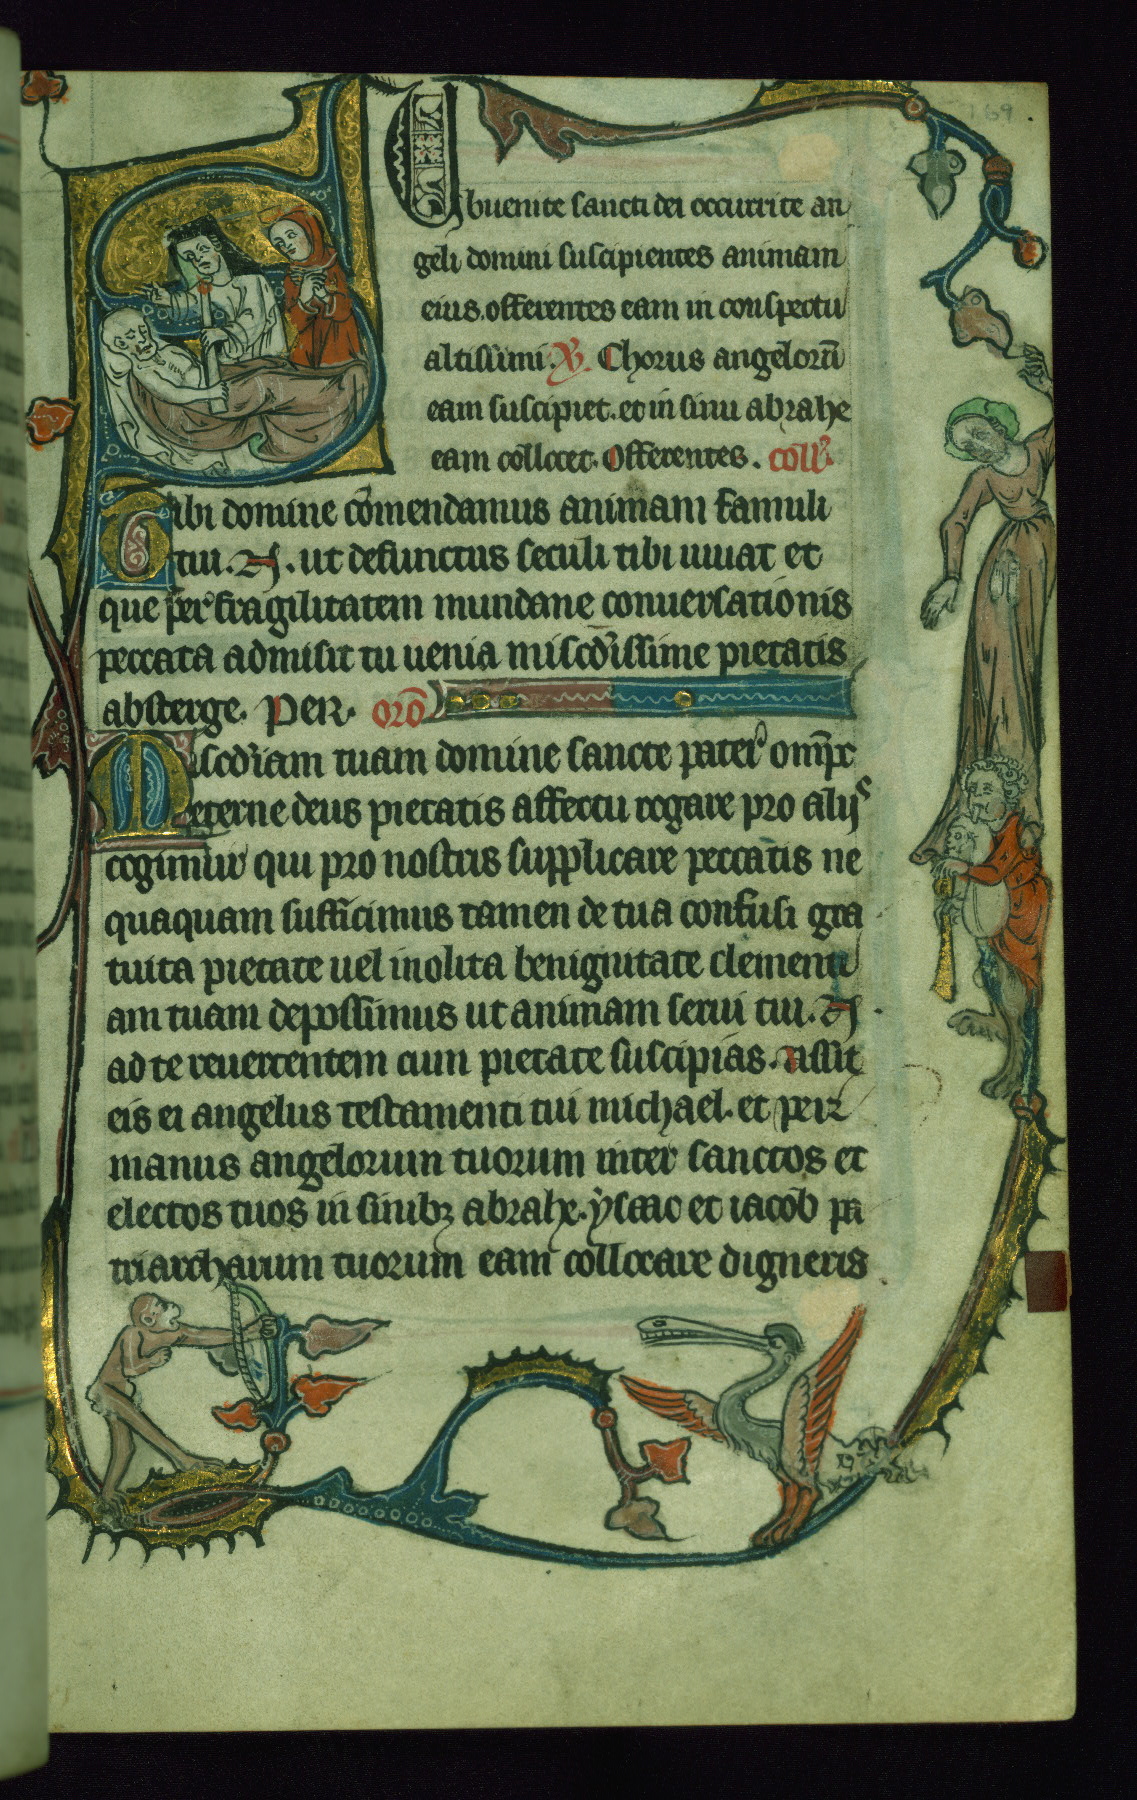 Subuenite sancti dei occurrite an
geli domini suscipientes animam
eius. offerentes eam in conspectu
altissimi. V. Chorus angeloru̅
eam suscipiet. et in sinu abrahe
eam collocet. Offerentes. coll̅.
Tibi domine co̅mendamus animam famuli
tui. N. ut defunctus seculi tibi uiuat et
que per fragilitatem mundane conuersationis
peccata admisit tu uenia misc̅dissime pietatis
absterge. Per. oro̅
Misc̅diam tuam domine sancte pater om̅ps
eterne deus pietatis affectu rogare pro alijs
cogimur qui pro nostris supplicare peccatis ne
quaquam sufficimus tamen de tua confusi gra
tuita pietate uel inolita benignitate clementi
am tuam depossimus ut animam serui tui. N.
ad te reuertentem cum pietate suscipias. assit
eis ei angelus testamenti tui michael. et per
manus angelorum tuorum inter sanctos et
electos tuos in sinibꝫ abrahe. ysaac et iacob pa
triarcharum tuorum eam collocare digneris
169